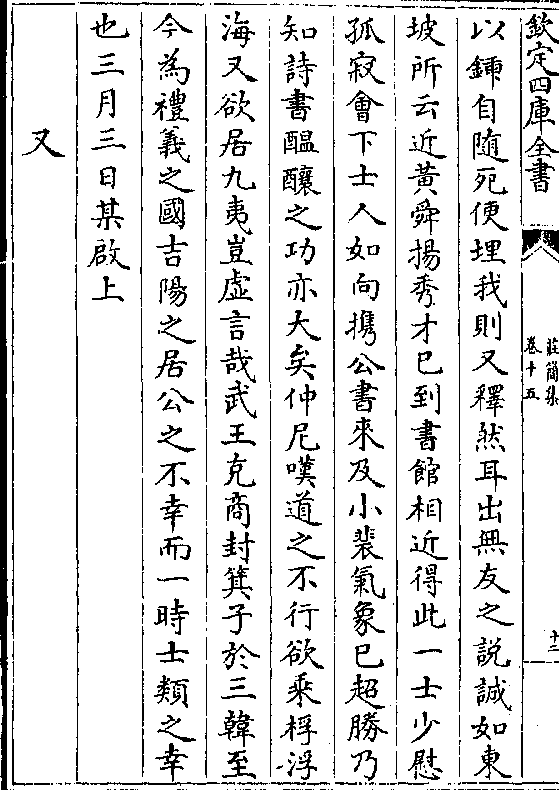 欽定四庫全書
莊簡集
卷十五
十二
以鍤自隨死便埋我則又釋然耳出無友之說誠如東
坡所云近黃舜揚秀才已到書館相近得此一士少慰
孤寂會下士人如向攜公書來及小裴氣象已超勝乃
知詩書醖釀之功亦大矣仲尼嘆道之不行欲乘桴浮
海又欲居九夷豈虛言哉武王克商封箕子於三韓至
今為禮義之國吉陽之居公之不幸而一時士類之幸
也三月三日某啟上
又